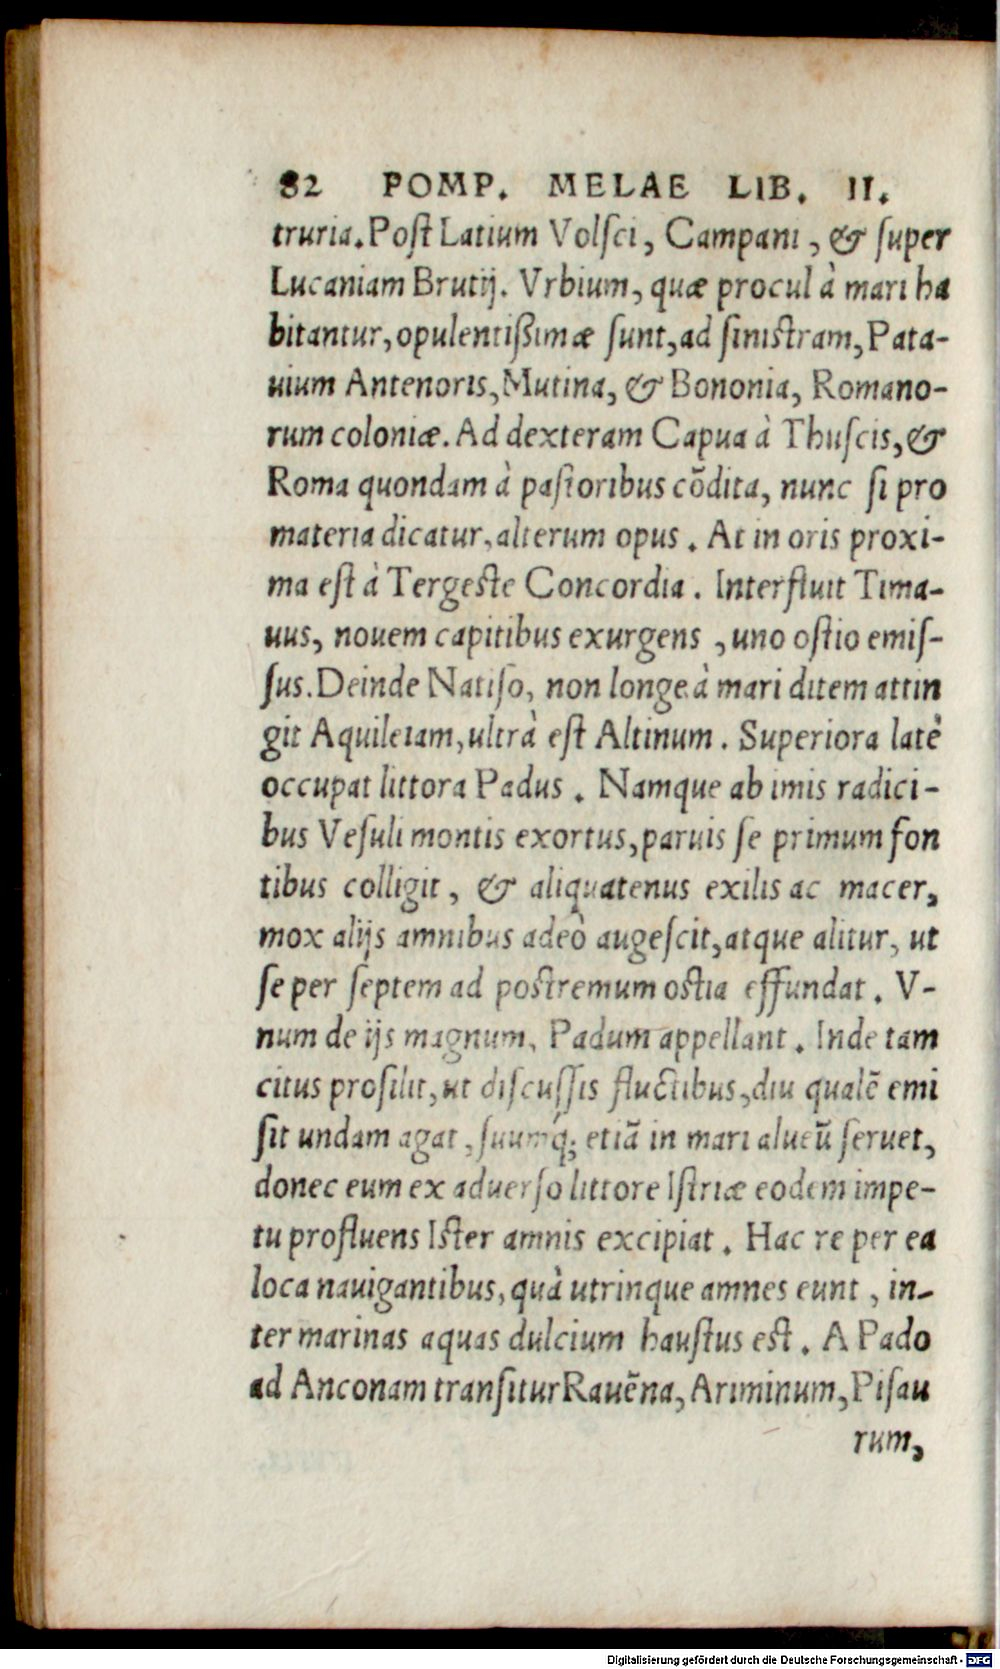 82 POMP. MELAE LIB. II.
truria. Poſt Latium Volſci, Campani, & ſuper
Lucaniam Brutij. Vrbium, quæ procul à mari ha
bitantur, opulentißimæ ſunt, ad ſiniſtram, Pata-
uium Antenoris, Mutina, & Bononia, Romano-
rum coloniæ. Ad dexteram Capua à Thuſcis, &
Roma quondam à paſtoribus cōdita, nunc ſi pro
materia dicatur, alterum opus. At in oris proxi-
ma eſt à Tergeſte Concordia. Interfluit Tima-
uus, nouem capitibus exurgens, uno oſtio emiſ-
ſus. Deinde Natiſo, non longe à mari ditem attin
git Aquileiam, ultrà eſt Altinum. Superiora latè
occupat littora Padus. Namque ab imis radici-
bus Veſuli montis exortus, paruis ſe primum fon
tibus colligit, & aliquatenus exilis ac macer,
mox alijs amnibus adeò augeſcit, atque alitur, ut
ſe per ſeptem ad poſtremum oſtia effundat. V-
num de ijs magnum, Padum appellant. Inde tam
citus proſilit, ut diſcuſſis fluctibus, diu qualē emi
ſit undam agat, ſuumq́; etiā in mari alueū ſeruet,
donec eum ex aduerſo littore Iſtriæ eodem impe-
tu profluens Iſter amnis excipiat. Hac re per ea
loca nauigantibus, quà utrinque amnes eunt, in-
ter marinas aquas dulcium hauſtus eſt. A Pado
ad Anconam tranſitur Rauēna, Ariminum, Piſau
rum,
Digitalisierung gefördert durch die Deutsche Forschungsgemeinschaft - DFG